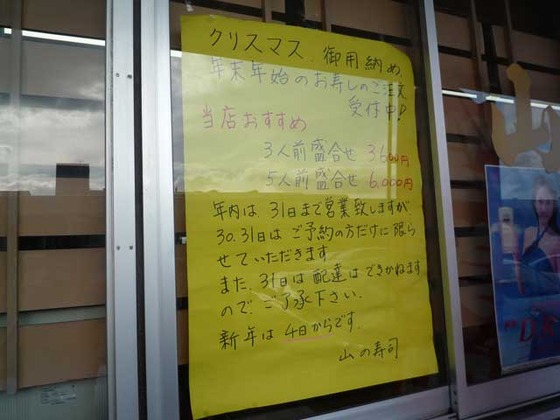 クリスマス、御用納め、
年末年始のお寿しのご注文
受付中!
当店おすすめ
3人前盛合せ 3600円
5人前盛合せ 6.000円
年内は31日まで営業致しますが
30.31日はご予約の方だけに限ら
せていただきます
また、31日は配達はできかねます
ので、ご了承下さい.
新年は4日からです.
山の寿司